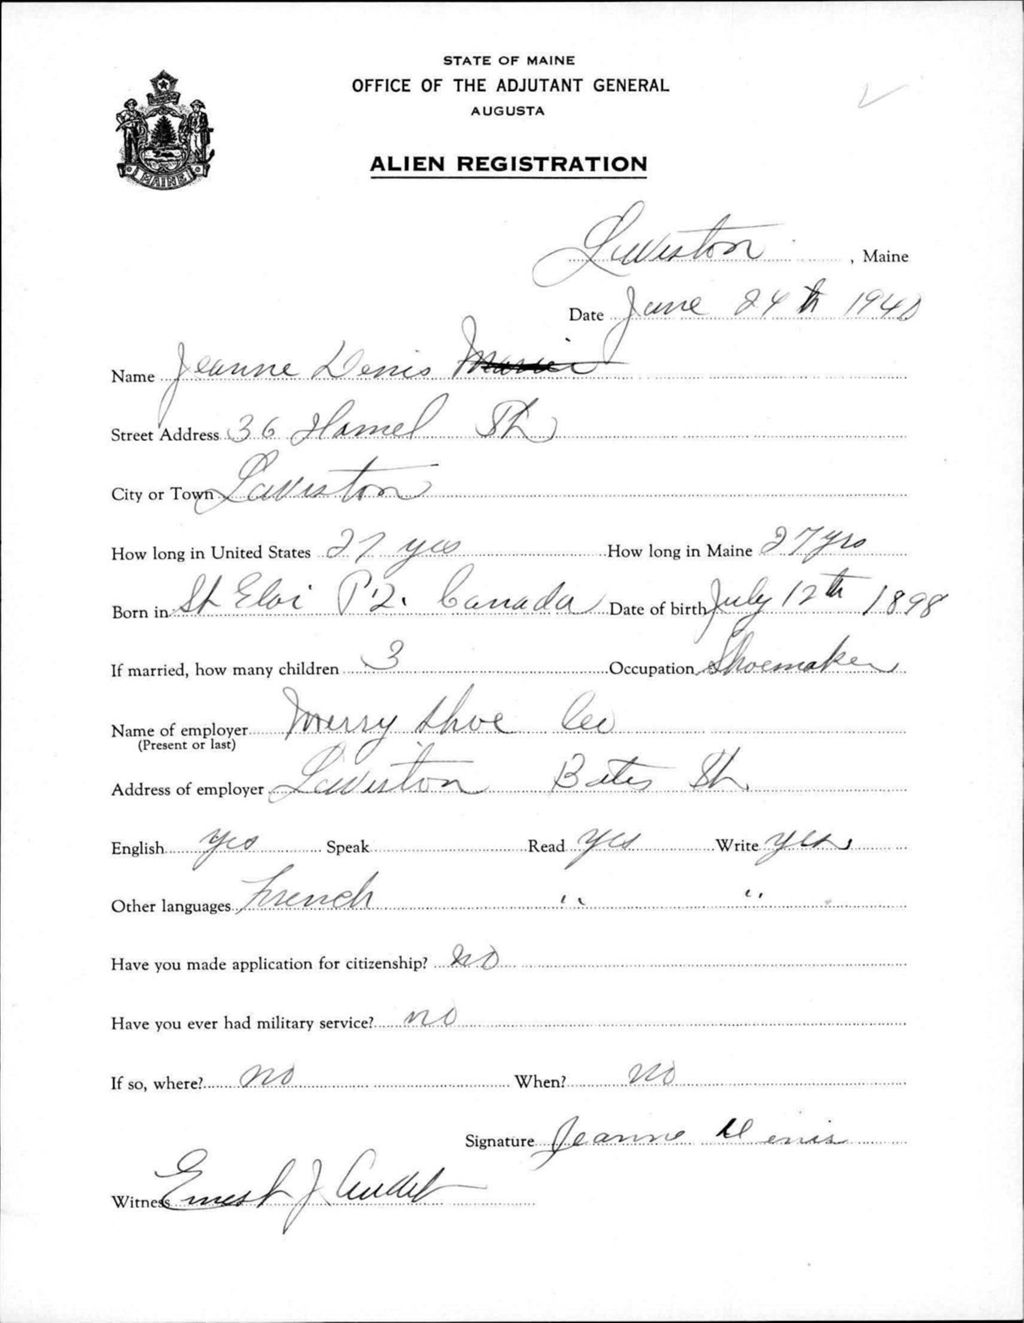 STATE OF MAINE
OFFICE OF THE ADJUTANT GENERAL
AUGUSTA
ALIEN REGISTRATION
MAINE
Lewiston, Maine
Date June 24th 1940
Name Jeanne Denis
Street Address 36 Hamel St
City or Town Lewiston
How long in United States 27 yrs How long in Maine 27 yrs
Born in St Eloi P.Q. Canada Date of birth July 12th 1898
If married, how many children 3 Occupation Shoemaker
Name of employer Merry Shoe Co
(Present or last)
Address of employer Lewiston Bates St.
English yes Speak Read yes Write yes
Other languages French " "
Have you made application for citizenship? no
Have you ever had military service? no
If so, where? no When? no
Signature Jeanne Denis
Witness Ernest J Audet